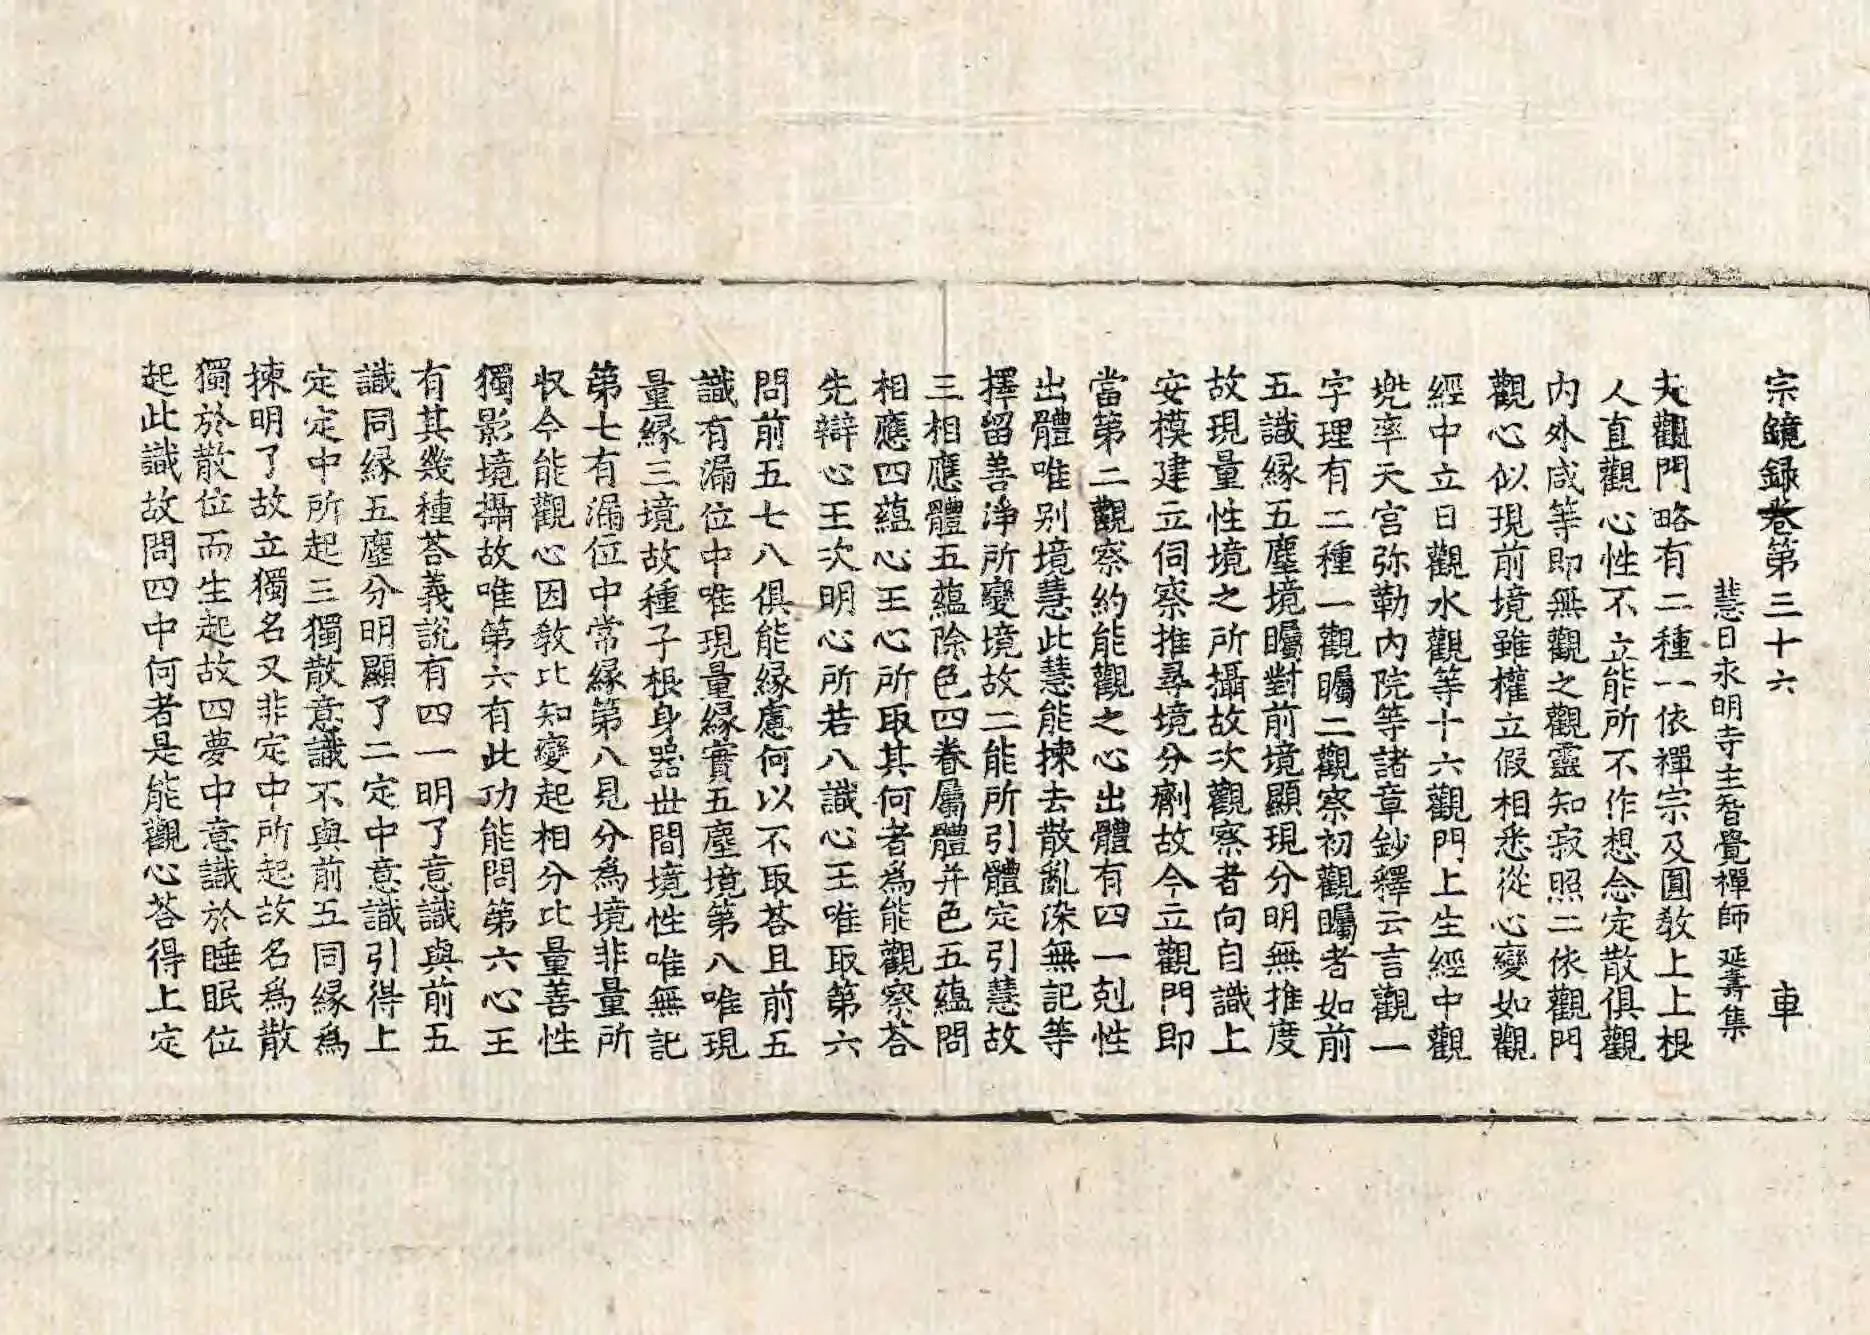 宗鏡録卷第三十六 車
慧日永明寺主智覺禪師 延壽集
夫觀門略有二種一依禪宗及圓教上上根
人直觀心性不立能所不作想念定散俱觀
内外咸等即無觀之觀靈知寂照二依觀門
觀心似現前境雖權立假相悉從心變如觀
經中立日觀水觀等十六觀門上生經中觀
兜率天宫弥勒内院等諸章鈔釋云言觀一
字理有二種一觀矚二觀察初觀矚者如前
五識緣五塵境矚對前境顯現分明無推度
故現量性境之所攝故次觀察者向自識上
安模建立伺察推尋境分劑故今立觀門即
當第二觀察約能觀之心出體有四一剋性
出體唯别境慧此慧能揀去散亂染無記等
擇留善淨所變境故二能所引體定引慧故
三相應體五蘊除色四眷屬體并色五蘊問
相應四蘊心王心所取其何者為能觀察荅
先辯心王次明心所若八識心王唯取第六
問前五七八俱能緣慮何以不取荅且前五
識有漏位中唯現量緣實五塵境第八唯現
量緣三境故種子根身器世間境性唯無記
第七有漏位中常緣第八見分為境非量所
収今能觀心因教比知變起相分比量善性
獨影境攝故唯第六有此功能問第六心王
有其幾種荅義說有四一明了意識與前五
識同緣五塵分明顯了二定中意識引得上
定定中所起三獨散意識不與前五同緣為
揀明了故立獨名又非定中所起故名為散
獨於散位而生起故四夢中意識於睡眠位
起此識故問四中何者是能觀心荅得上定